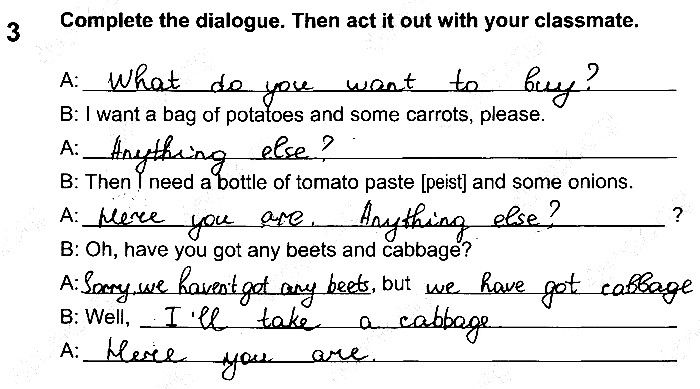 3 Complete the dialogue. Then act it out with your classmate.
A: What do you want to buy?
B: I want a bag of potatoes and some carrots, please.
A: Anything else?
B: Then I need a bottle of tomato paste [peist] and some onions.
A: Here you are. Anything else? ?
B: Oh, have you got any beets and cabbage?
A: Sorry, we haven't got any beets, but we have got cabbage
B: Well, I'll take a cabbage
A: Here you are.